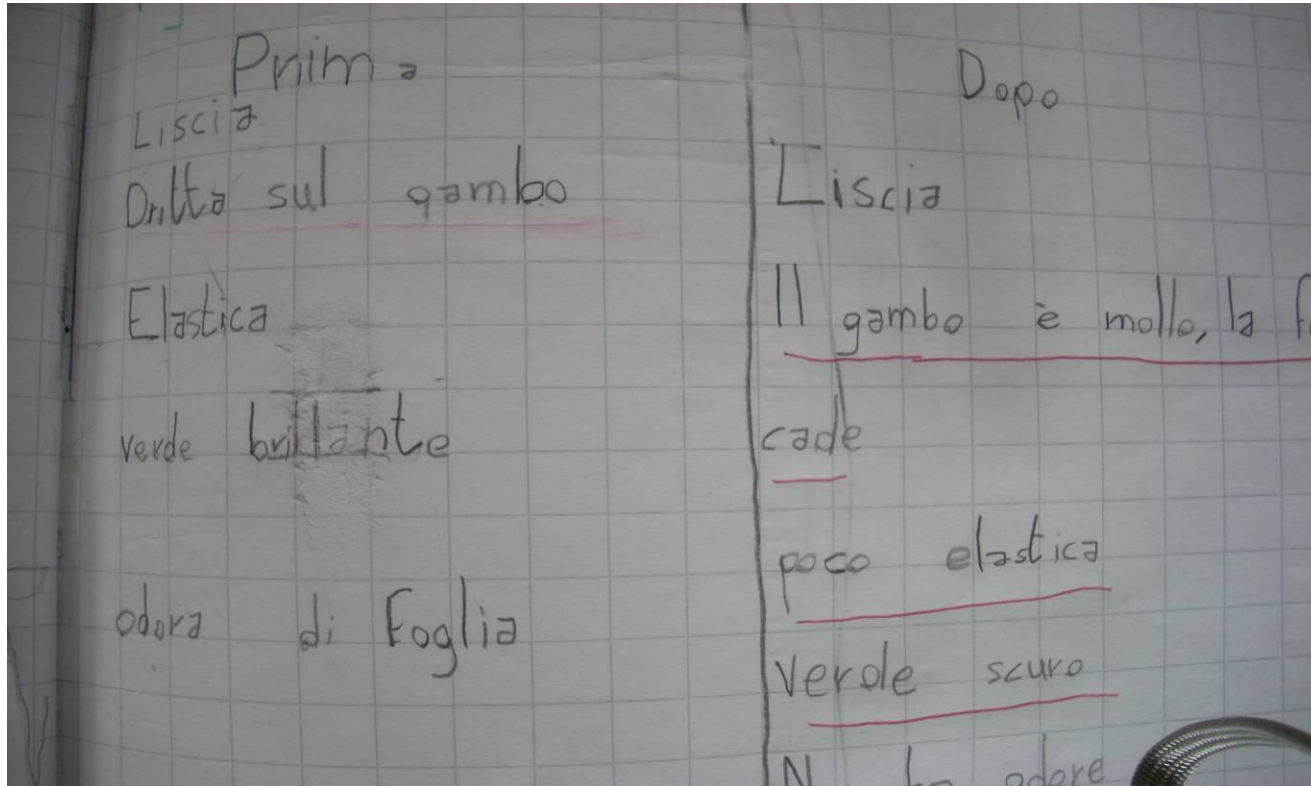 Prima
Liscia
Dritta sul gambo
Elastica
verde brillante
odora di Foglia
Dopo
Liscia
Il gambo è mollo, la
cade
poco elastica
verde scuro
odore